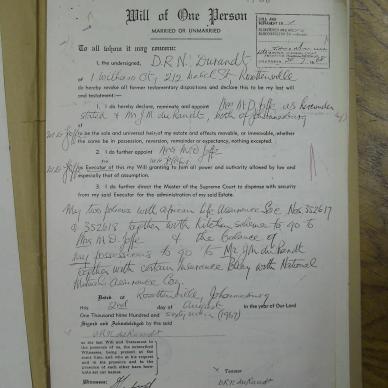 Will of One Person
MARRIED OR UNMARRIED
To all whom it may concern:
I, the undersigned, D.R.N. Durandt
of 1 Williams Ct, 212 Street Rosettenville
do hereby revoke all former testamentary dispositions and declare this to be my last will
and testament:—
1. I do hereby declare, nominate and appoint Mrs M.D. Joffe as hereunder
stated & Mr J.M. du Randt, both of Johannesburg
to be the sole and universal heirs of my estate and effects movable, or immovable, whether
the same be in possession, reversion, remainder or expectancy, nothing excepted.
2. I do further appoint Mrs M.D. Joffe
Executor of this my Will granting to him all power and authority allowed by law and
especially that of assumption.
3. I do further direct the Master of the Supreme Court to dispense with security
from my said Executor for the administration of my said Estate.
My two policies with African Life Assurance Soc. Nos. 352617
& 352618 together with kitchen to go to
Mrs M.D. Joffe & the balance of
my possessions to go to Mr J.M. du Randt
together with certain Insurance Policy with National
Mutual Assurance Coy.
Dated at Rosettenville, Johannesburg
this 2nd day of August in the year of Our Lord
One Thousand Nine Hundred and sixty (1967)
Signed and Acknowledged by the said
D.R.N. du Randt
as the last Will and Testament in
the presence of us, the subscribed
Witnesses, being present at the
same time, and who at his request
and in his presence and in the
presence of each other have here-
unto set our names.
Witnesses:
Testator
D.R.N. du Randt